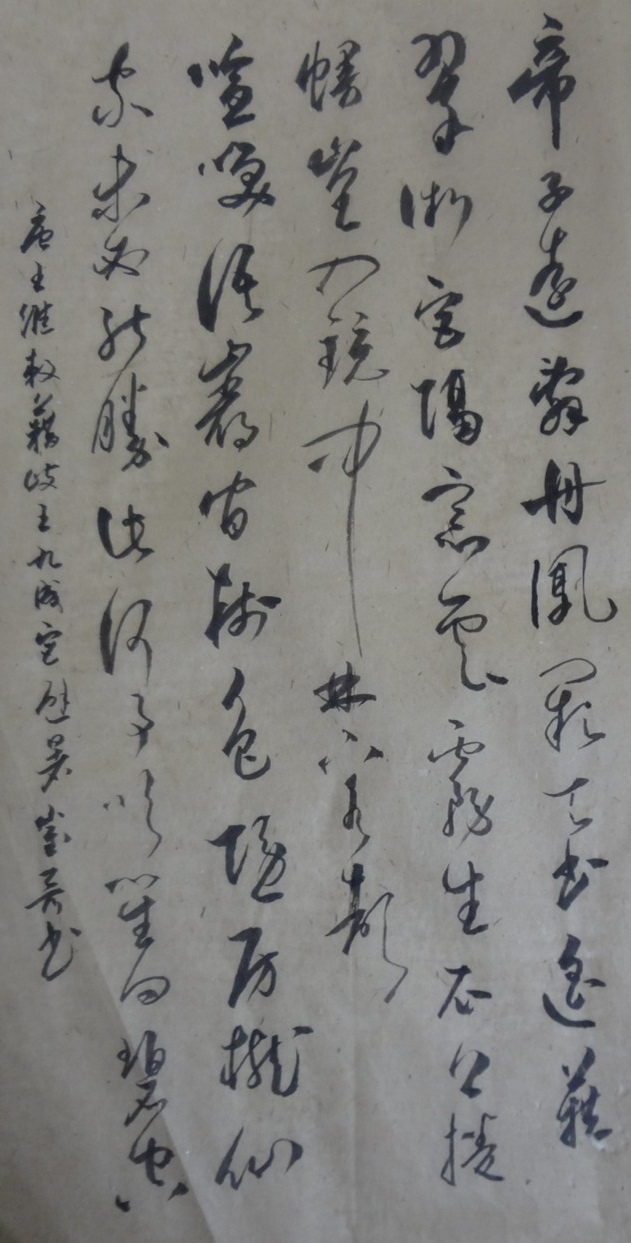 帝子遠辭丹鳳闕天書遙藉
翠微宮隔窓雲霧生衣上捲
幔山泉入鏡中林下水聲
喧咲語巖間樹色隱房櫳仙
家未必能勝此何事吹笙向碧空
唐王維敕藉岐王九成宮避暑書